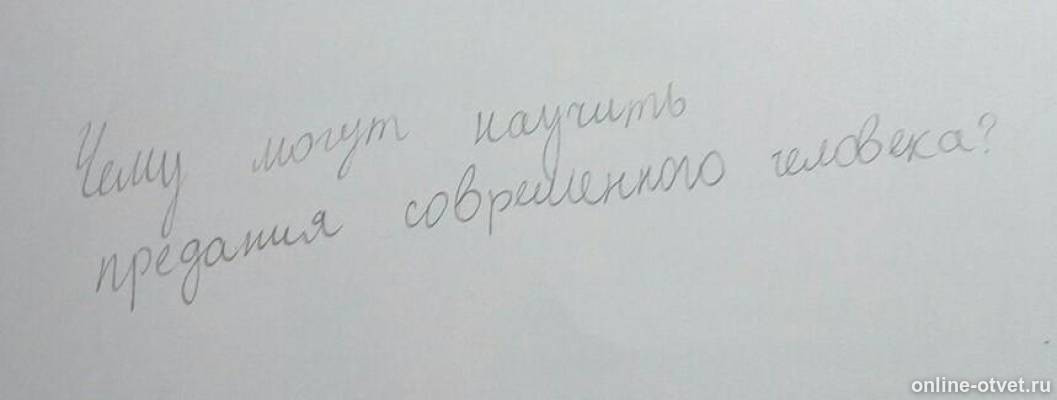 Чему могут научить
предания современного человека?
online-otvet.ru